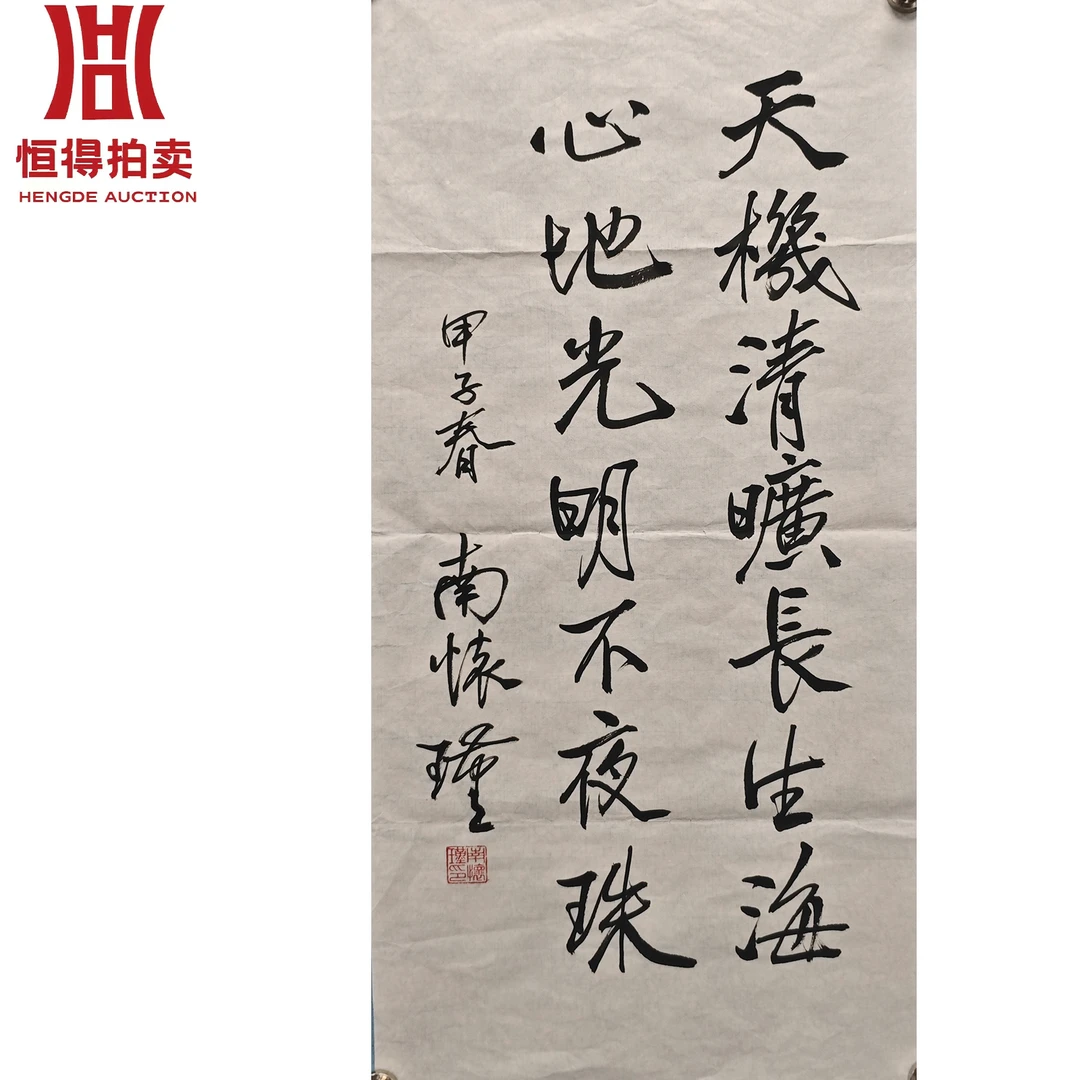 恒得拍卖
HENGDE AUCTION
天機清曠長生海
心地光明不夜珠
甲子春 南懷瑾
南懷瑾印